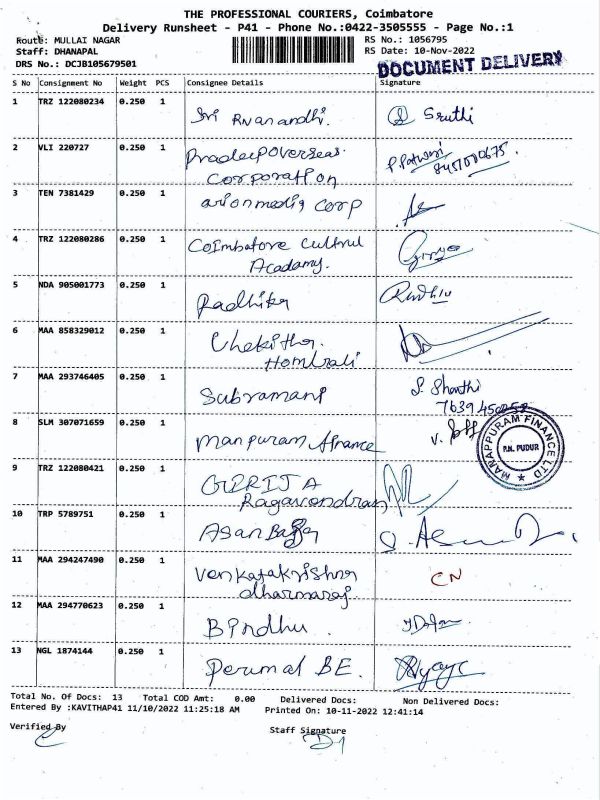 THE PROFESSIONAL COURIERS, Coimbatore
Delivery Runsheet - P41 - Phone No.:0422-3505555 - Page No.:1
Route: MULLAI NAGAR RS No.: 1056795
Staff: DHANAPAL RS Date: 10-Nov-2022
DRS No.: DCJB105679501 DOCUMENT DELIVERY
S No Consignment No Weight PCS Consignee Details Signature
1 TRZ 122080234 0.250 1 Sri Sruthi
2 VLI 220727 0.250 1 Pradeep Overseas.
Corporation
3 TEN 7381429 0.250 1 arionmedia corp
4 TRZ 122080286 0.250 1 Coimbatore Cultrul
Acadamy.
5 NDA 905001773 0.250 1 Radhika
6 MAA 858329012 0.250 1
7 MAA 293746405 0.250 1 Subramani S. Shanthi
8 SLM 307071659 0.250 1 Manpuram finance
MANAPPURAM FINANCE LTD
P.N. PUDUR
9 TRZ 122080421 0.250 1 GIRIJA
Ragavendran
10 TRP 5789751 0.250 1
11 MAA 294247490 0.250 1 Venkatakrishna CN
dharmaraj
12 MAA 294770623 0.250 1 Bindhu.
13 NGL 1874144 0.250 1 Perumal BE.
Total No. Of Docs: 13 Total COD Amt: 0.00 Delivered Docs: Non Delivered Docs:
Entered By :KAVITHAP41 11/10/2022 11:25:18 AM Printed On: 10-11-2022 12:41:14
Verified By
Staff Signature